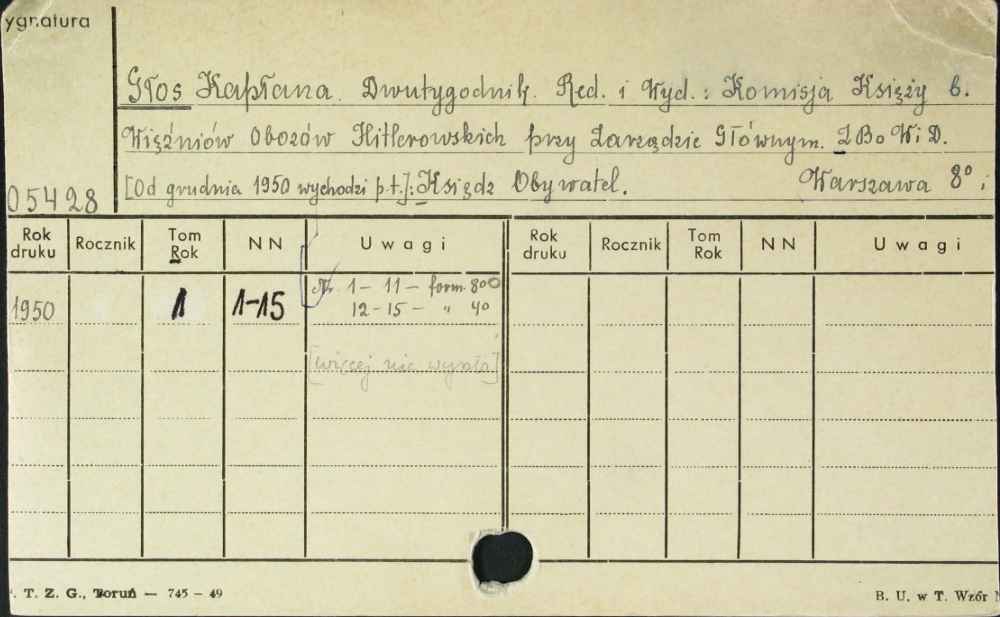 ygnatura
Głos Kapłana. Dwutygodnik. Red. i Wyd.: Komisja Księży b.
Więźniów Obozów Hitlerowskich przy Zarządzie Głównym. ZBoWiD.
[Od grudnia 1950 wychodzi p.t.]: Ksiądz Obywatel. Warszawa 8° ;
05428
Rok druku Rocznik Tom Rok NN Uwagi Rok druku Rocznik Tom Rok NN Uwagi
1950 1 1-15 Nr 1 - 11 - form. 8°
12 - 15 - " 4°
[więcej nie wyszło]
. T. Z. G., Toruń — 745 - 49 B. U. w T. Wzór